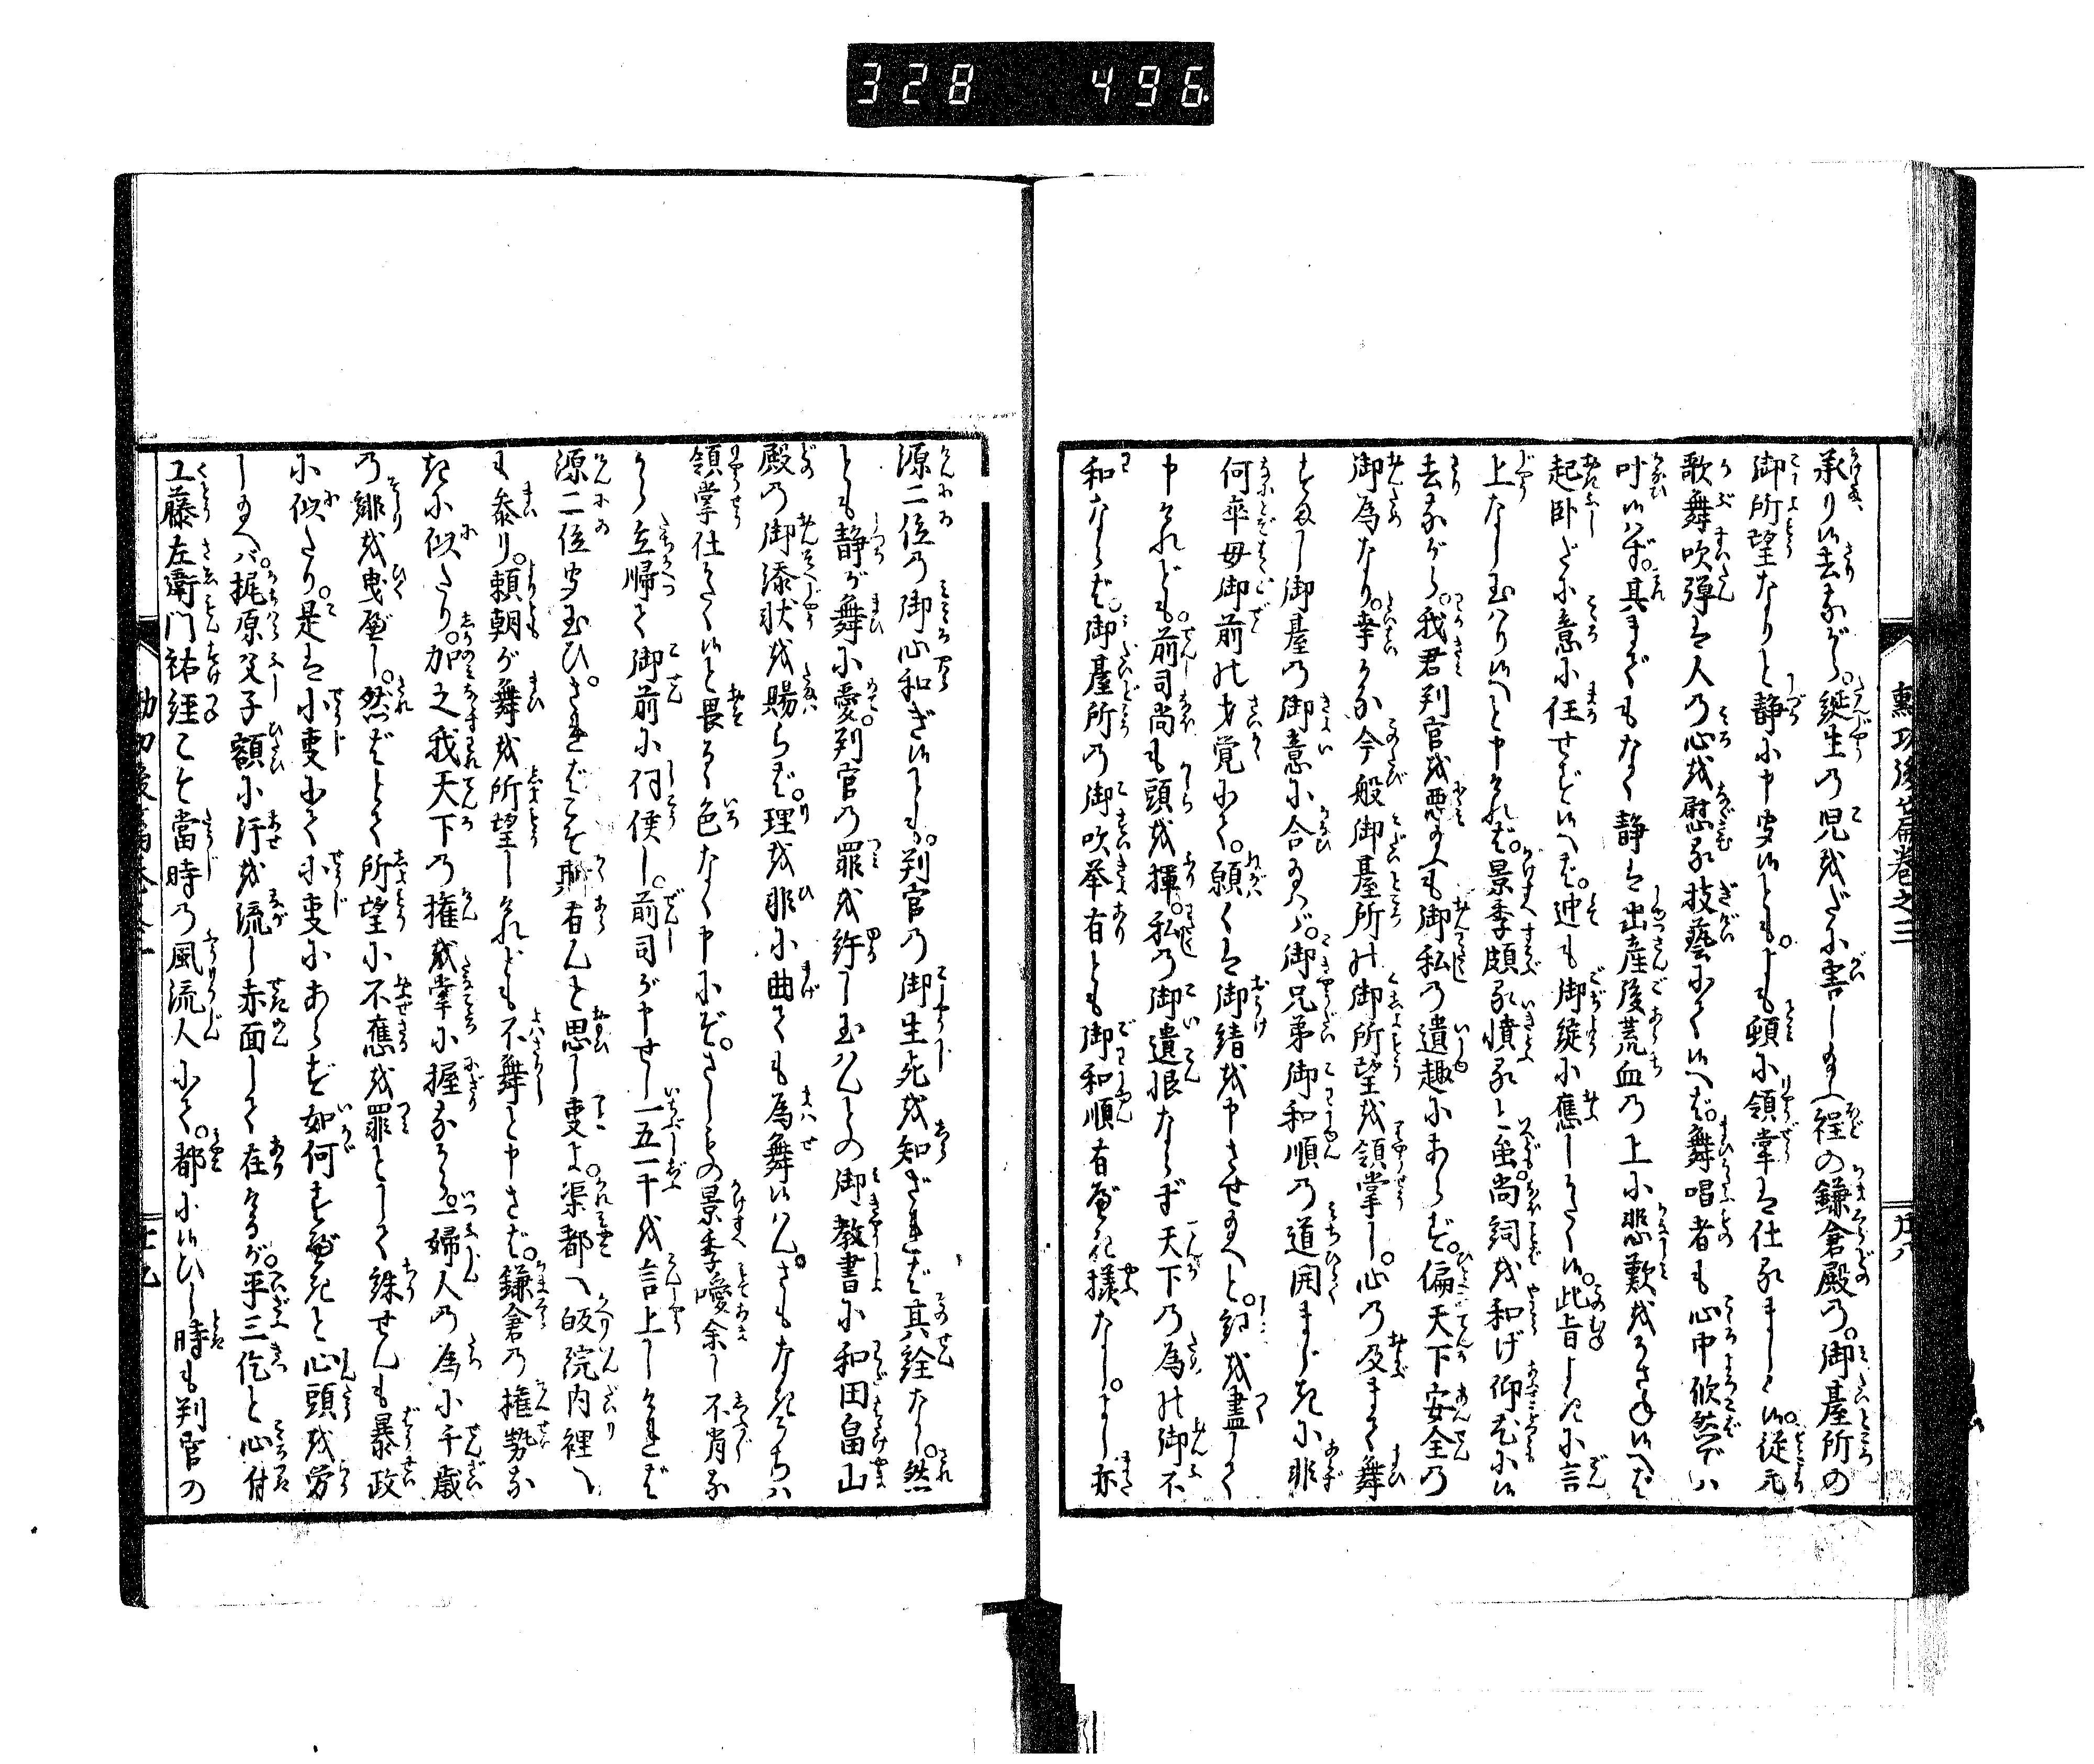 328 496
勲功後篇巻之三
承り候去ながら。綻生の児をだに害し給ふ程の鎌倉殿の。御臺所の
御所望なりと静に申交候とも。よも頓に領掌は仕るまじく候。従元
歌舞吹弾は人の心を慰る技藝にて候へば。舞唱者も心中欣然でハ
叶ひ候はず。其までもなく静は出産後荒血の上に悲歎をかさね候へば
起卧だに意に任せず候へば。迚も御綻に應じがたく候。此旨よきに言
上なし玉ハり候へと申ければ。景季頗る憤ると虽尚詞を和げ仰尤に候
去ながら。我君判官を悪給ふも御私の遺趣にあらず。偏天下安全の
御為なり。幸なるかな今般御臺所の御所望を領掌し。心の及まで舞
すまし御臺の御意に合給ハゞ。御兄弟御和順の道開まじきに非
何卒母御前の才覚にて。願くは御請を申させ給へと。詞を盡して
申けれども。前司尚も頭を揮。私の御遺恨ならず天下の為の御不
和ならば。御臺所の御吹挙有とも御和順有べき様なし。よし亦
源二位の御心和ぎ候とも。判官の御生死を知ざれば其詮なし。然
とも静が舞に愛。判官の罪を許し玉はんとの御教書に和田畠山
殿の御添状を賜らば。理を非に曲ても為舞候はん。さもなきうちハ
領掌仕がたく候と畏るゝ色なく申にぞ。さしもの景季噯余し不肖な
がら立帰て御前に伺侯し。前司が申せし一五一十を言上しければ
源二位安玉ひ。さればこそ斯有んと思し事よ。渠都へ皈院内裡へ
も参り。頼朝が舞を所望しけれども不舞と申さば。鎌倉の権勢な
きに似たり。加之我天下の権を掌に握ながら。一婦人の為に千歳
の誹を曳べし。然ばとて所望に不應を罪として誅せんも暴政
に似たり。是は小事にて小事にあらず如何すべきと心頭を労
し給へバ。梶原父子額に汗を流し赤面して在けるが。平三佗と心付
工藤左衛門祐経こそ當時の風流人にて。都に候ひし時も判官の